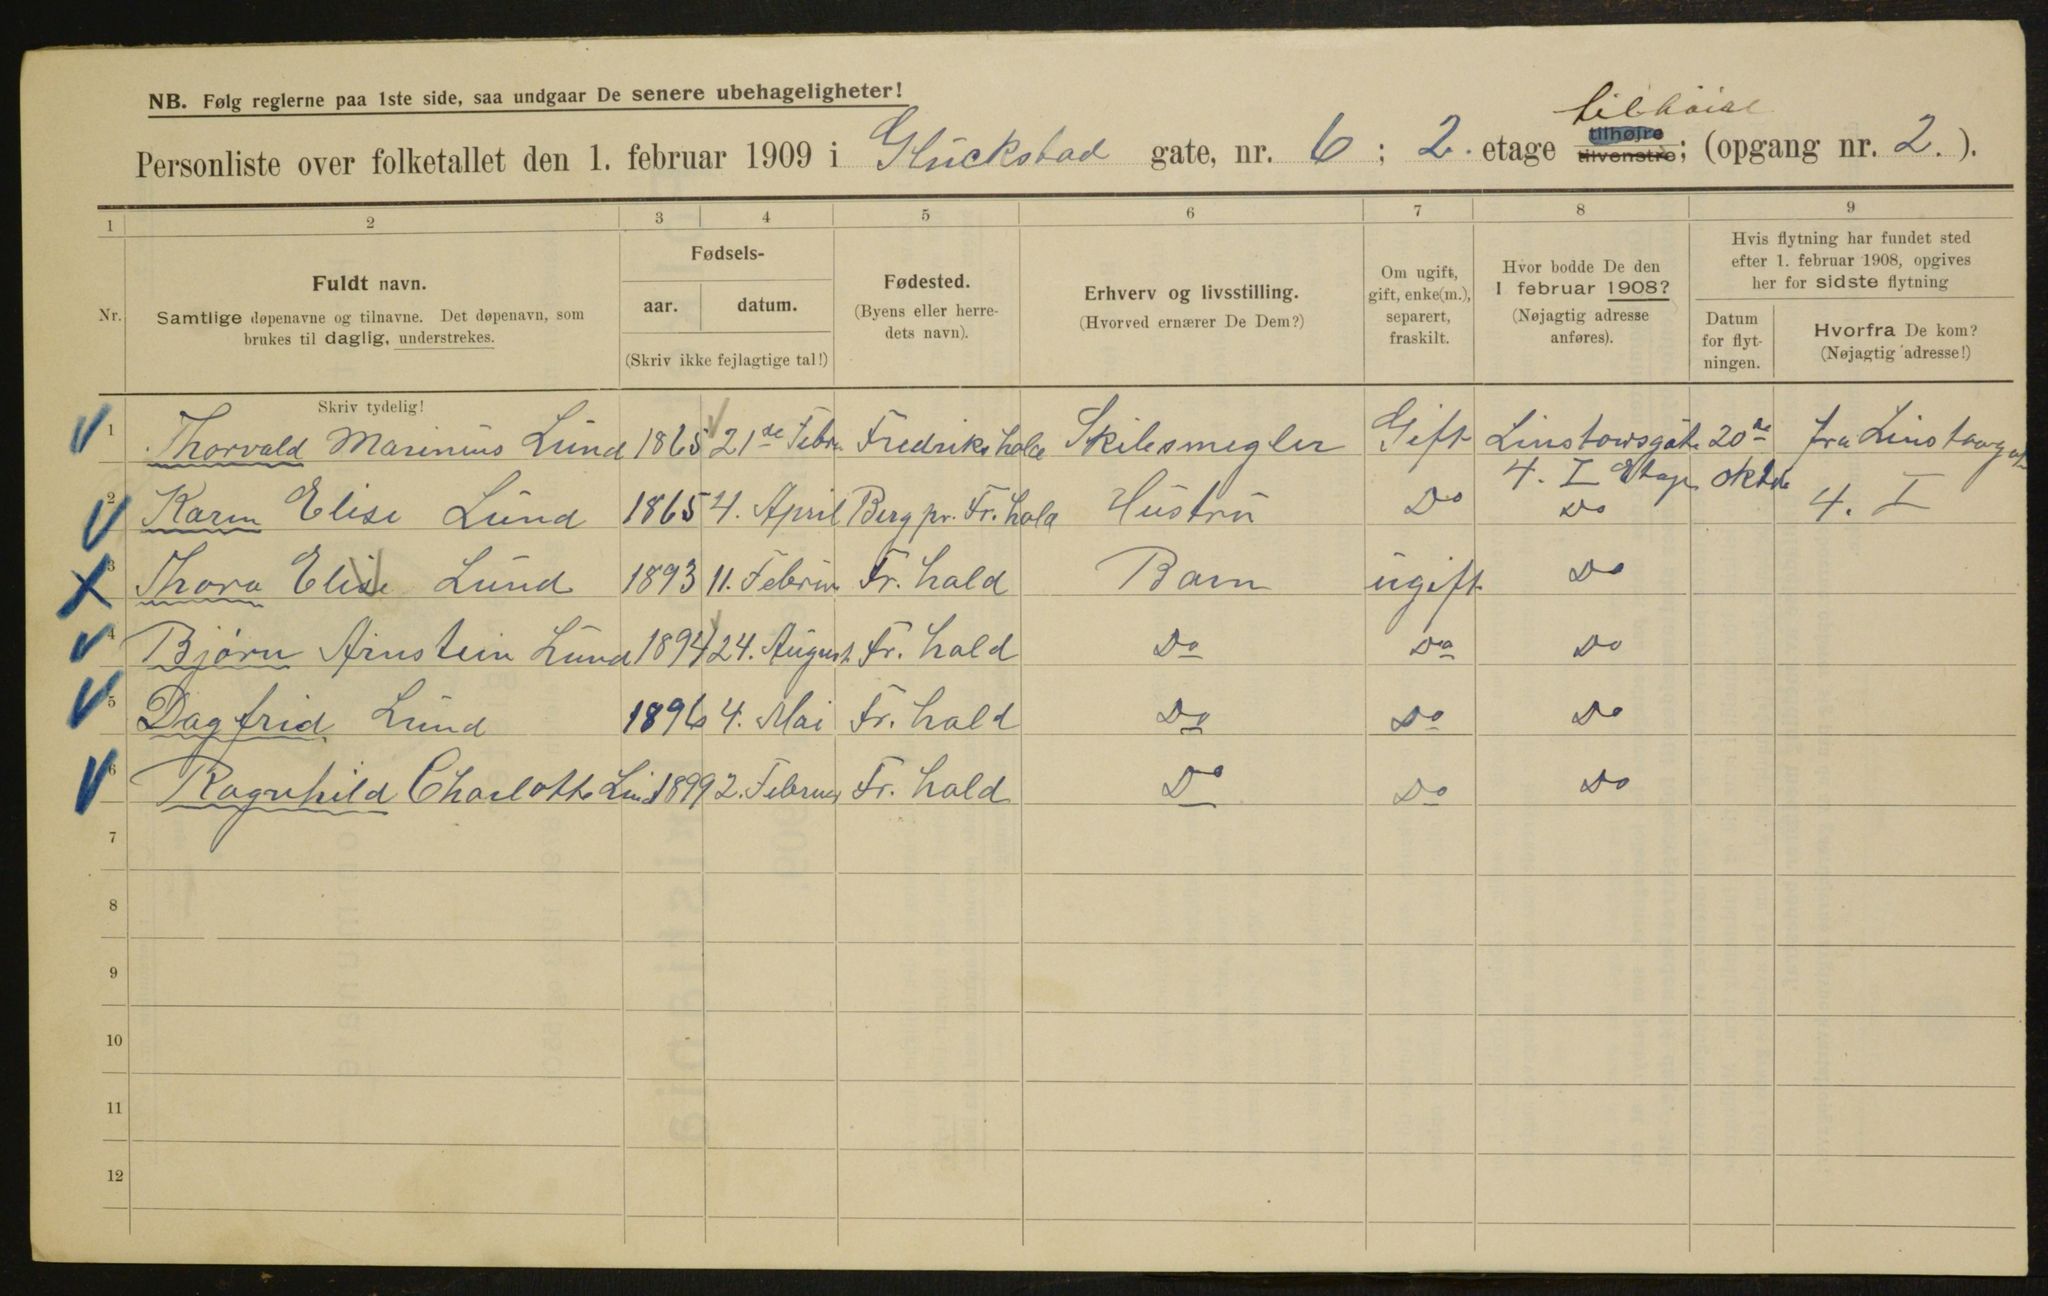 NB. Følg reglerne paa 1ste side, saa undgaar De senere ubehageligheter!
tilhøire
Personliste over folketallet den 1. februar 1909 i Glückstad gate, nr. 6 ; 2. etage tilhøjre tilvenstre; (opgang nr. 2. ).
1 2 3 4 5 6 7 8 9
Nr.
Fuldt navn.
Samtlige døpenavne og tilnavne. Det døpenavn, som
brukes til daglig, understrekes.
Fødsels-
aar. datum.
(Skriv ikke fejlagtige tal!)
Fødested.
(Byens eller herre-
dets navn).
Erhverv og livsstilling.
(Hvorved ernærer De Dem?)
Om ugift,
gift, enke(m.),
separert,
fraskilt.
Hvor bodde De den
1 februar 1908?
(Nøjagtig adresse
anføres).
Hvis flytning har fundet sted
efter 1. februar 1908, opgives
her for sidste flytning
Datum
for flyt-
ningen.
Hvorfra De kom?
(Nøjagtig adresse!)
Skriv tydelig!
1 Thorvald Marinius Lund 1865 21de Febru Fredrikshald Skibsmegler Gift Linstowsgate 20de fra Linstowgate
4. I Etage oktbr 4. I
2 Karen Elise Lund 1865 4. April Berg pr. Fr.hald Hustru Do Do
3 Thora Elise Lund 1893 11. Februar Fr. hald Barn ugift Do
4 Bjørn Arnstein Lund 1894 24. August Fr. hald Do Do Do
5 Dagfrid Lund 1896 4. Mai Fr. hald Do Do Do
6 Ragnhild Charlotte Lund 1899 2. Februar Fr. hald Do Do Do
7
8
9
10
11
12